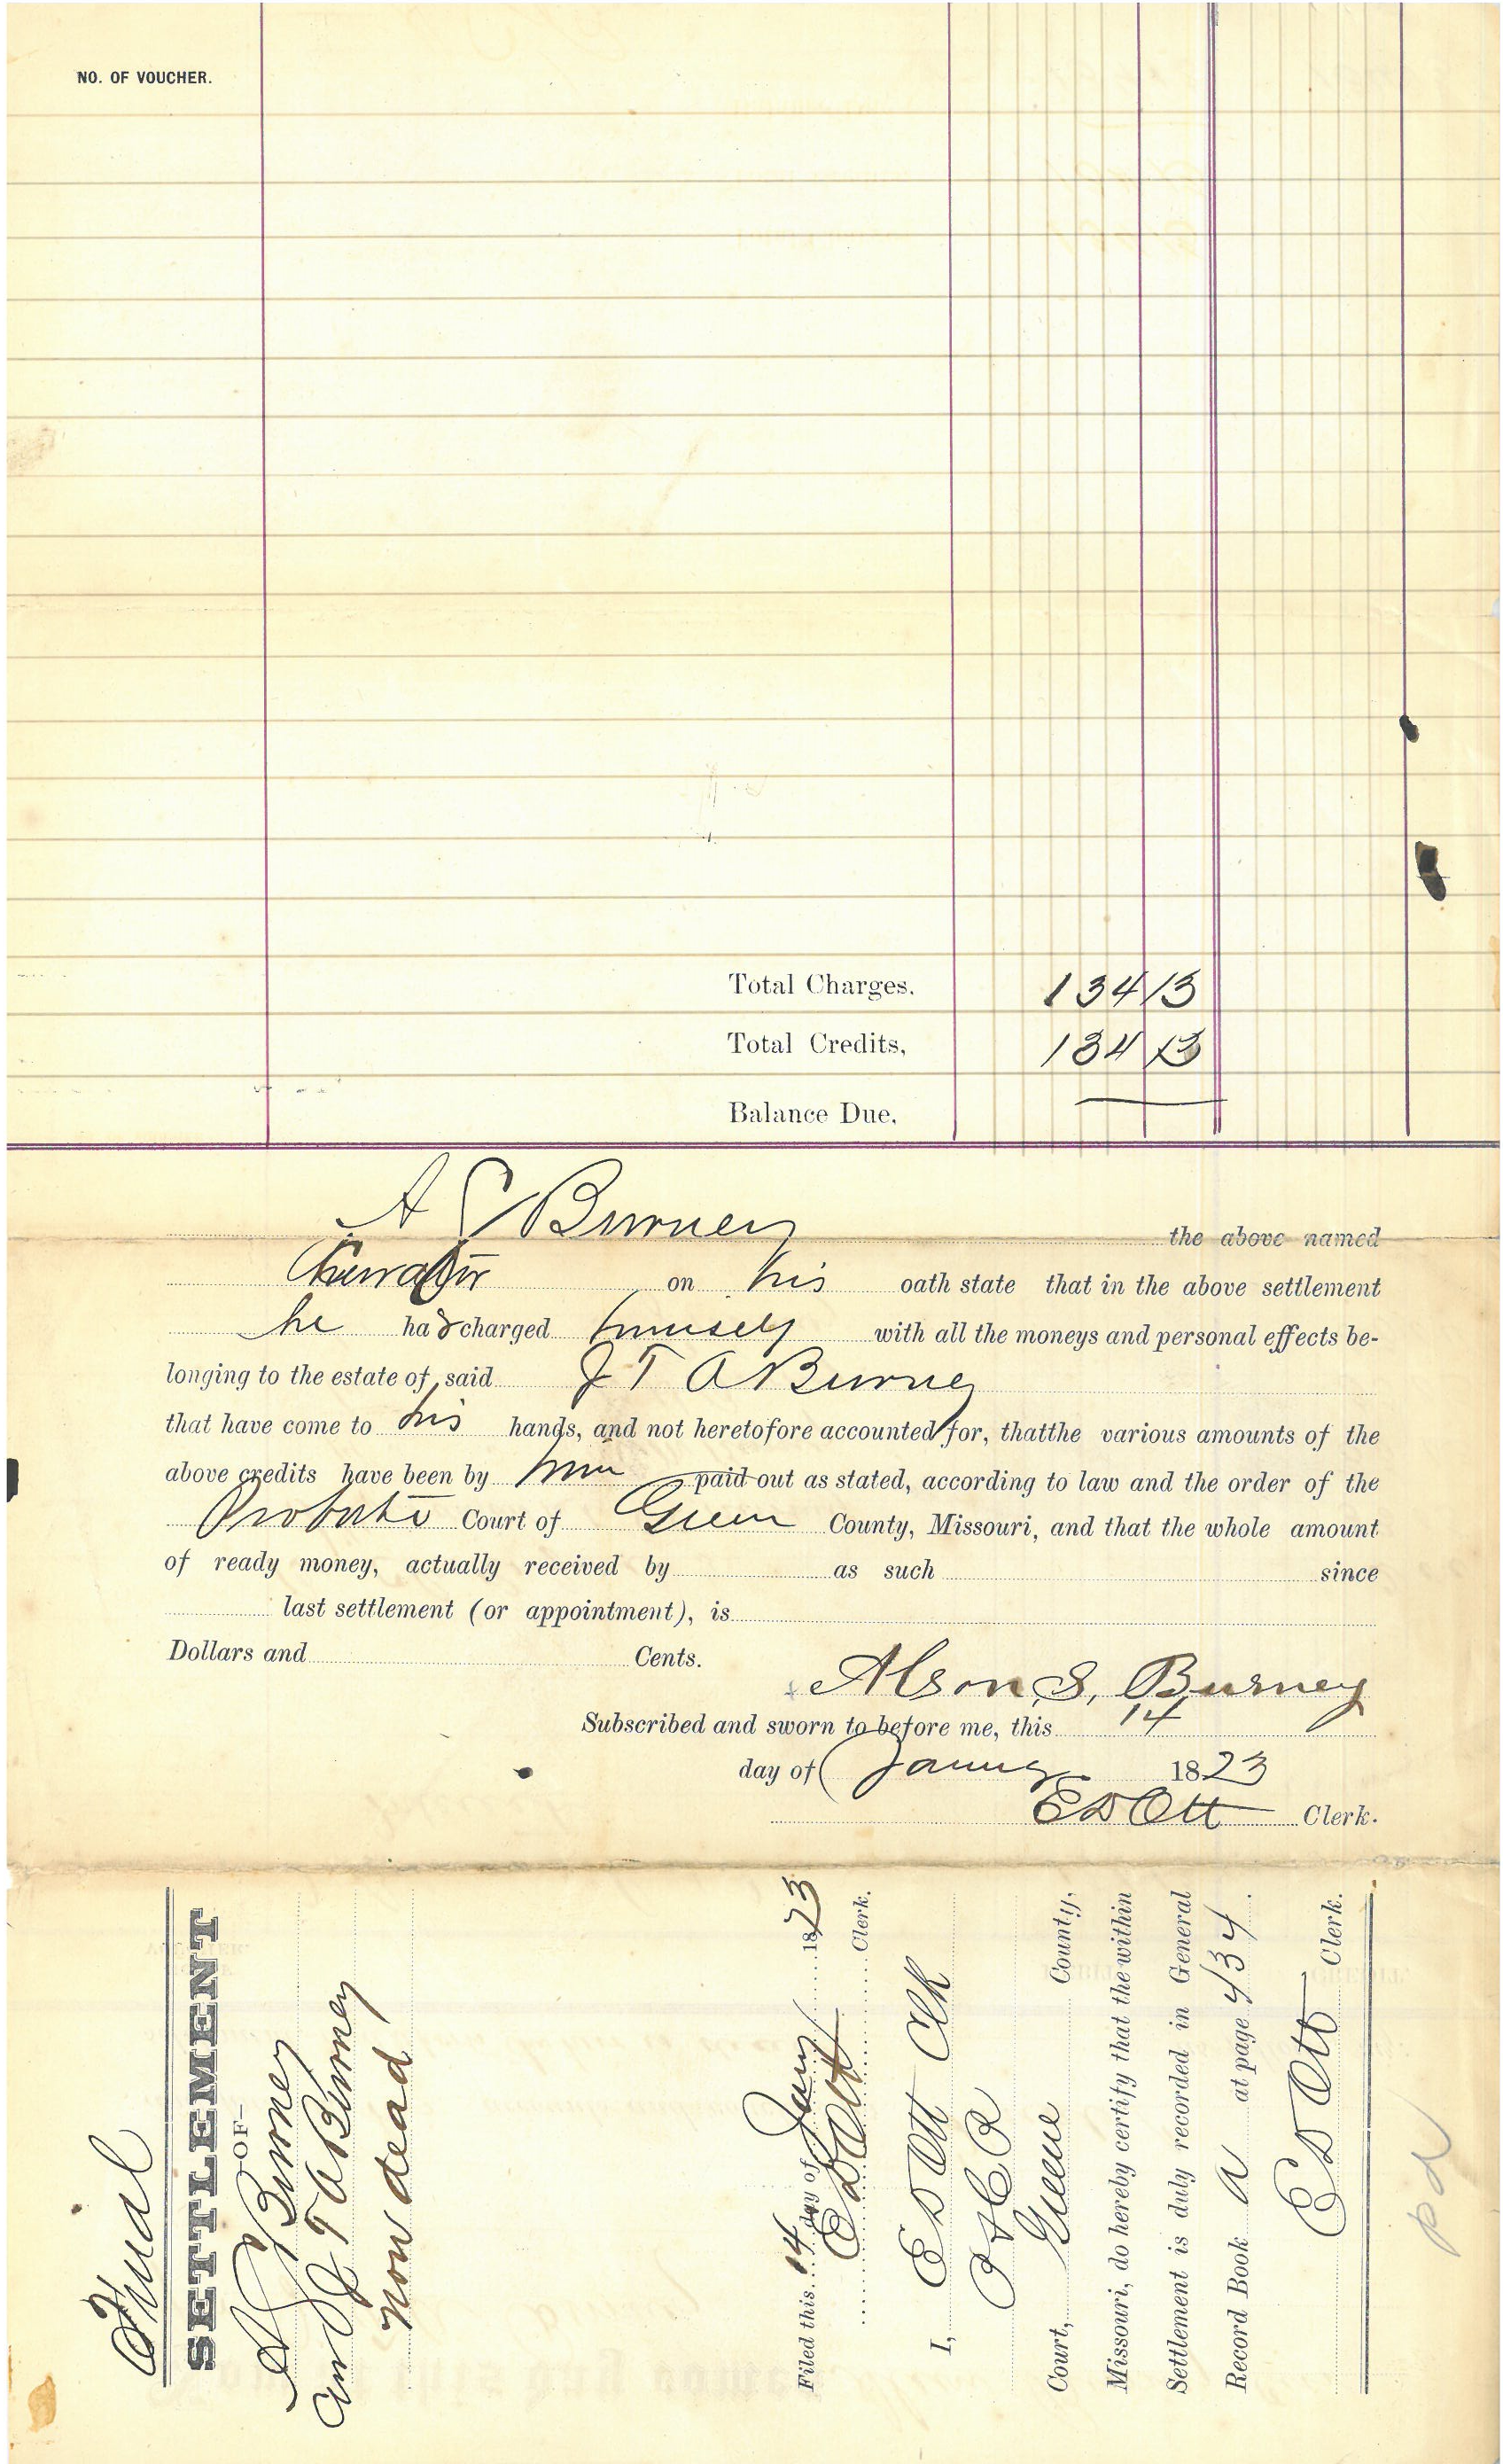 NO. OF VOUCHER.
Total Charges. 134 13
Total Credits, 134 13
Balance Due.
A S Burney the above named
Curator on his oath state that in the above settlement
he has charged himself with all the moneys and personal effects be-
longing to the estate of said J T A Burney
that have come to his hands, and not heretofore accounted for, thatthe various amounts of the
above credits have been by him paid out as stated, according to law and the order of the
Probate Court of Green County, Missouri, and that the whole amount
of ready money, actually received by as such since
last settlement (or appointment), is
Dollars and Cents.
Alson S. Burney
Subscribed and sworn to before me, this 14
day of January 1873
E D Ott Clerk.
Final
SETTLEMENT
-OF-
A S Burney
Cur J T A Burney
now dead
Filed this 14 day of Jany 1873
E D Ott Clerk.
I, E D Ott Clk
P & C P
Court, Greene County,
Missouri, do hereby certify that the within
Settlement is duly recorded in General
Record Book A at page 434.
E D Ott Clerk.
pd